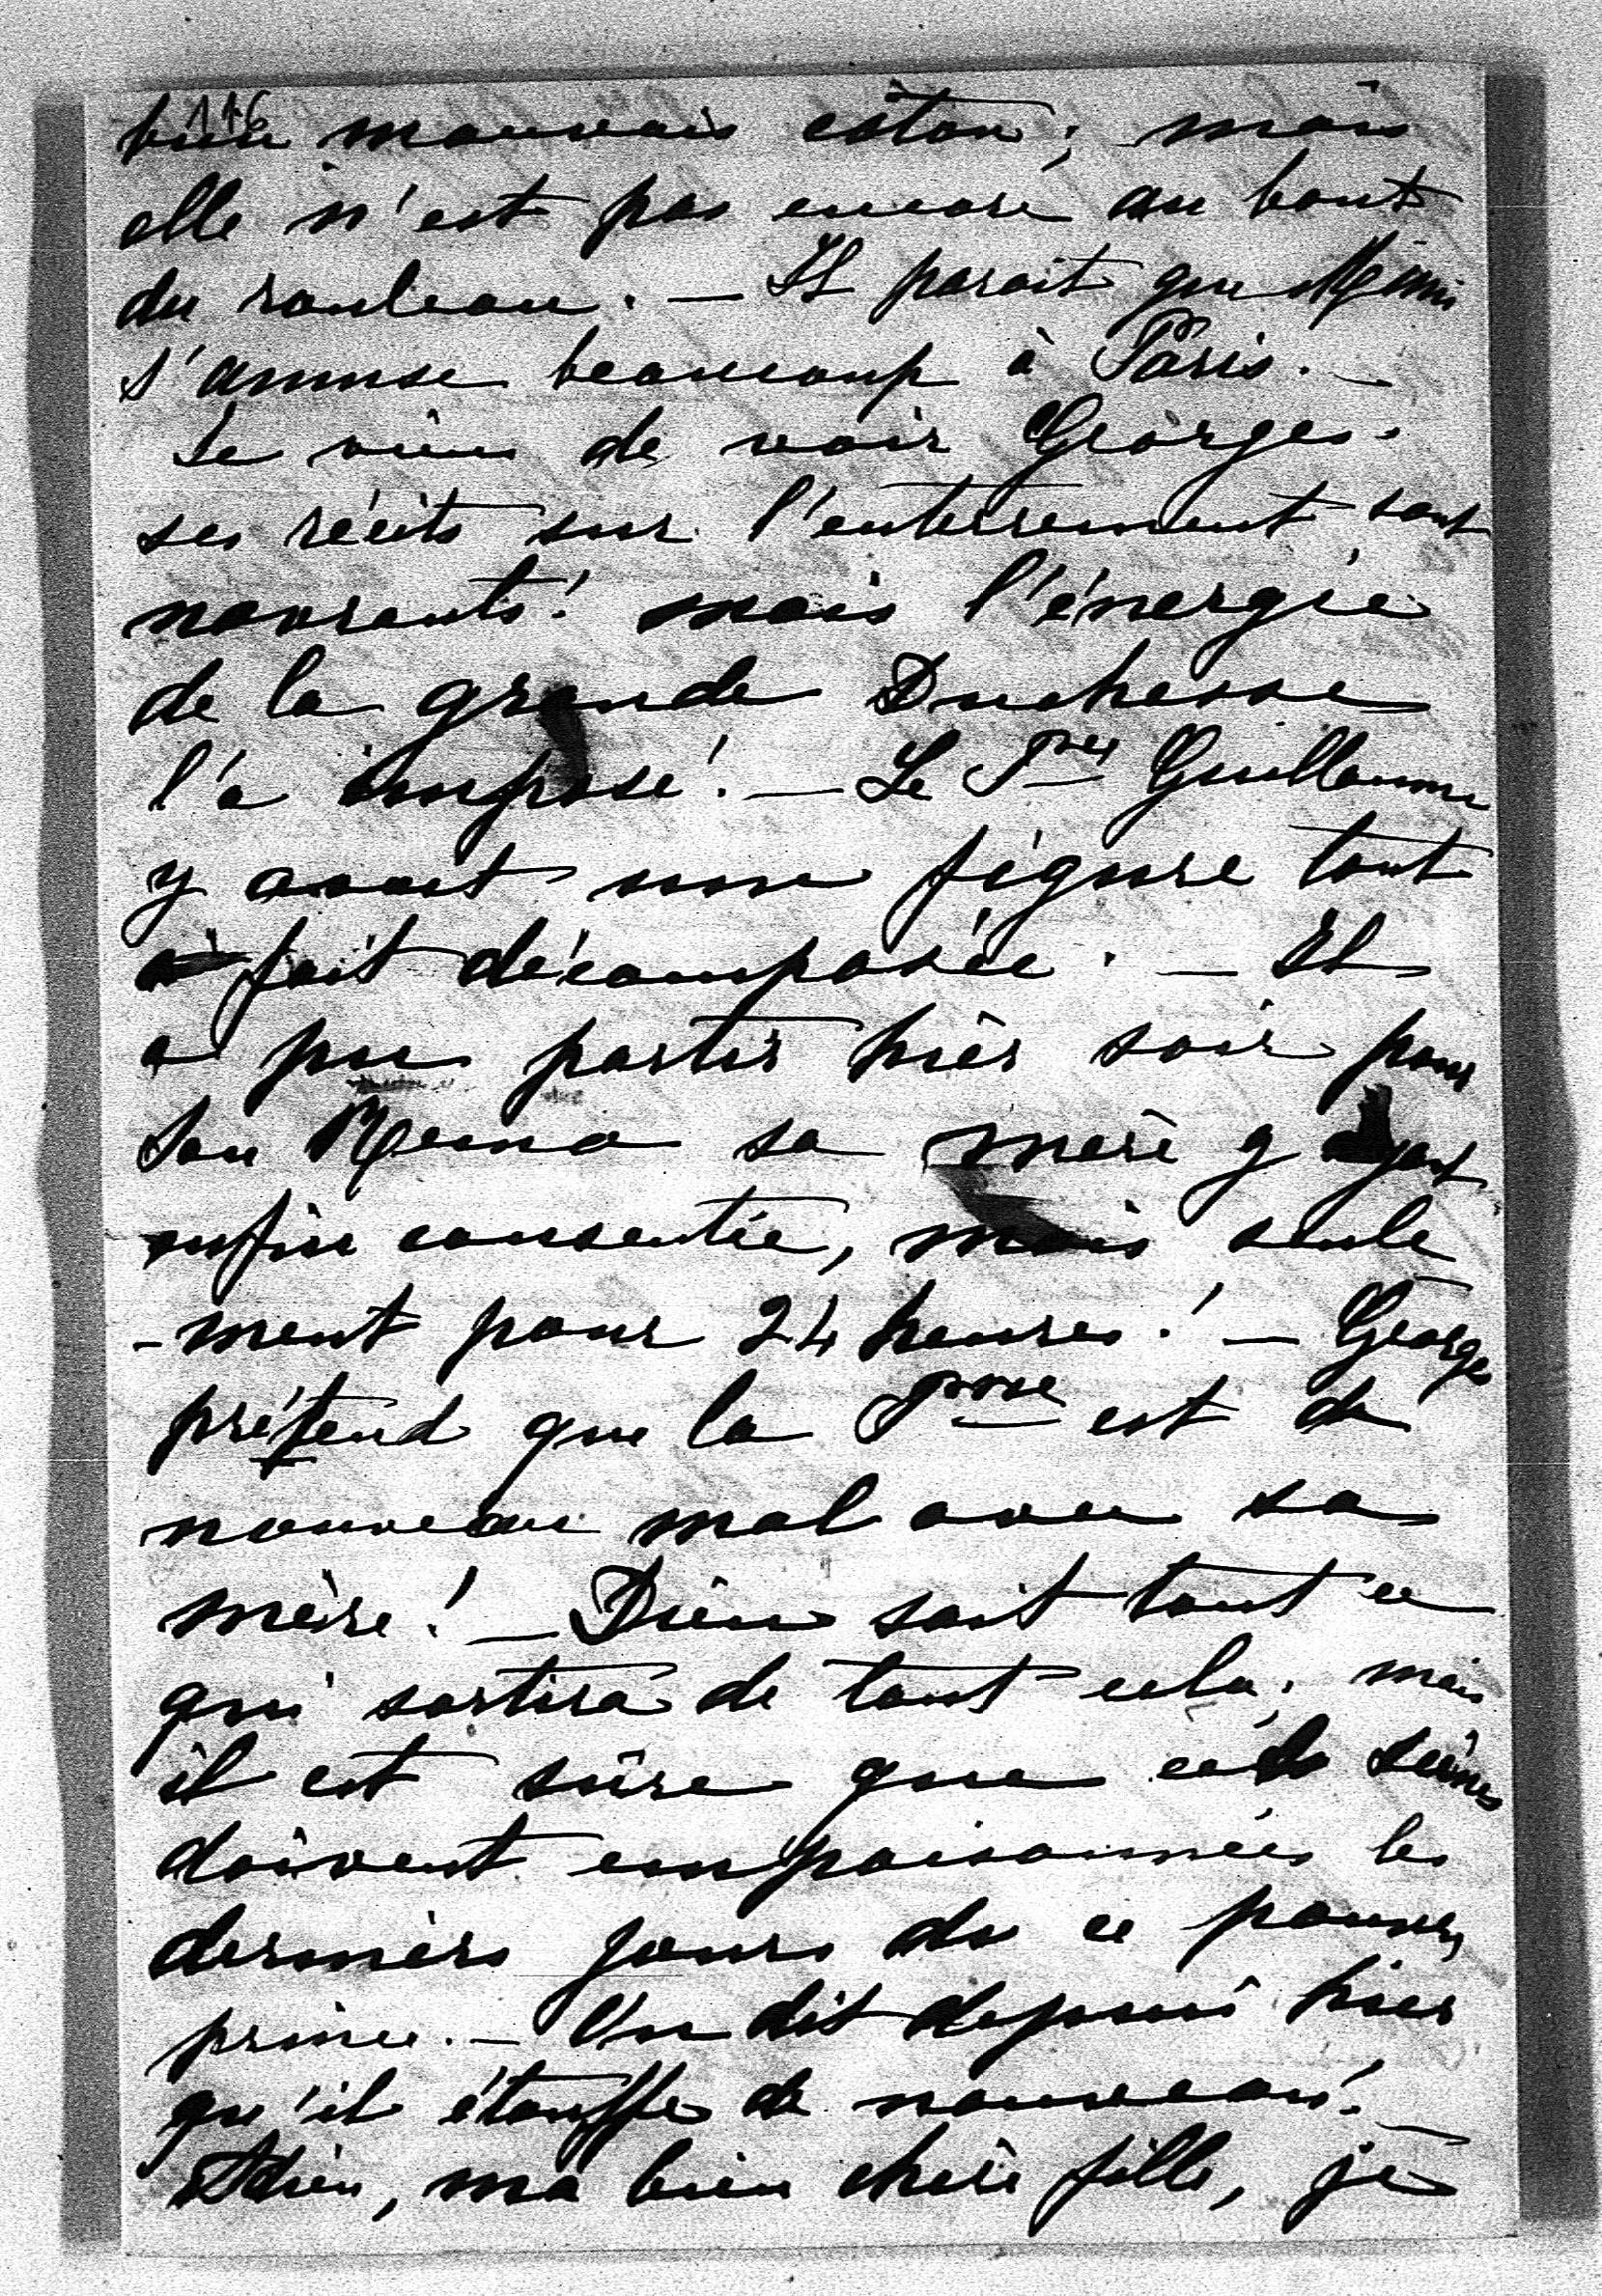 116
bien mauvais coton; mais
elle n'est pas encore au bout
du rouleau. — Il parait que Mimi
s'amuse beaucoup à Paris. —
Je viens de voir Georges.
ses récits sur l'enterrement sont
navrants! mais l'énergie
de la grande Duchesse
l'a imposé! — Le Pce Guillaume
y avait une figure tout
à fait décomposée. — Il
a pu partir hier soir pour
San Remo sa mère y ayant
enfin consentie, mais seule
-ment pour 24 heures! — Georges
prétend que la Psse est de
nouveau mal avec sa
mère! — Dieu sait tout ce
qui sortira de tout cela; mais
il est sûre que ces scènes
doivent empoisonnées les
derniers jours de ce pauvre
prince. — On dit depuis hier
qu'il étouffe de nouveau! —
Adieu, ma bien chère fille, je